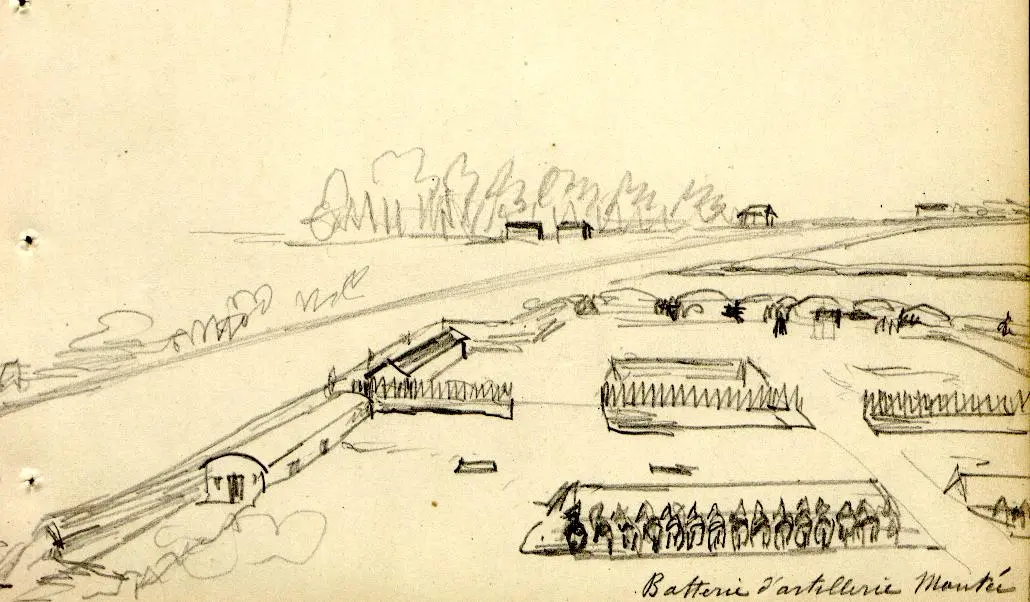 Batterie d'artillerie Montée